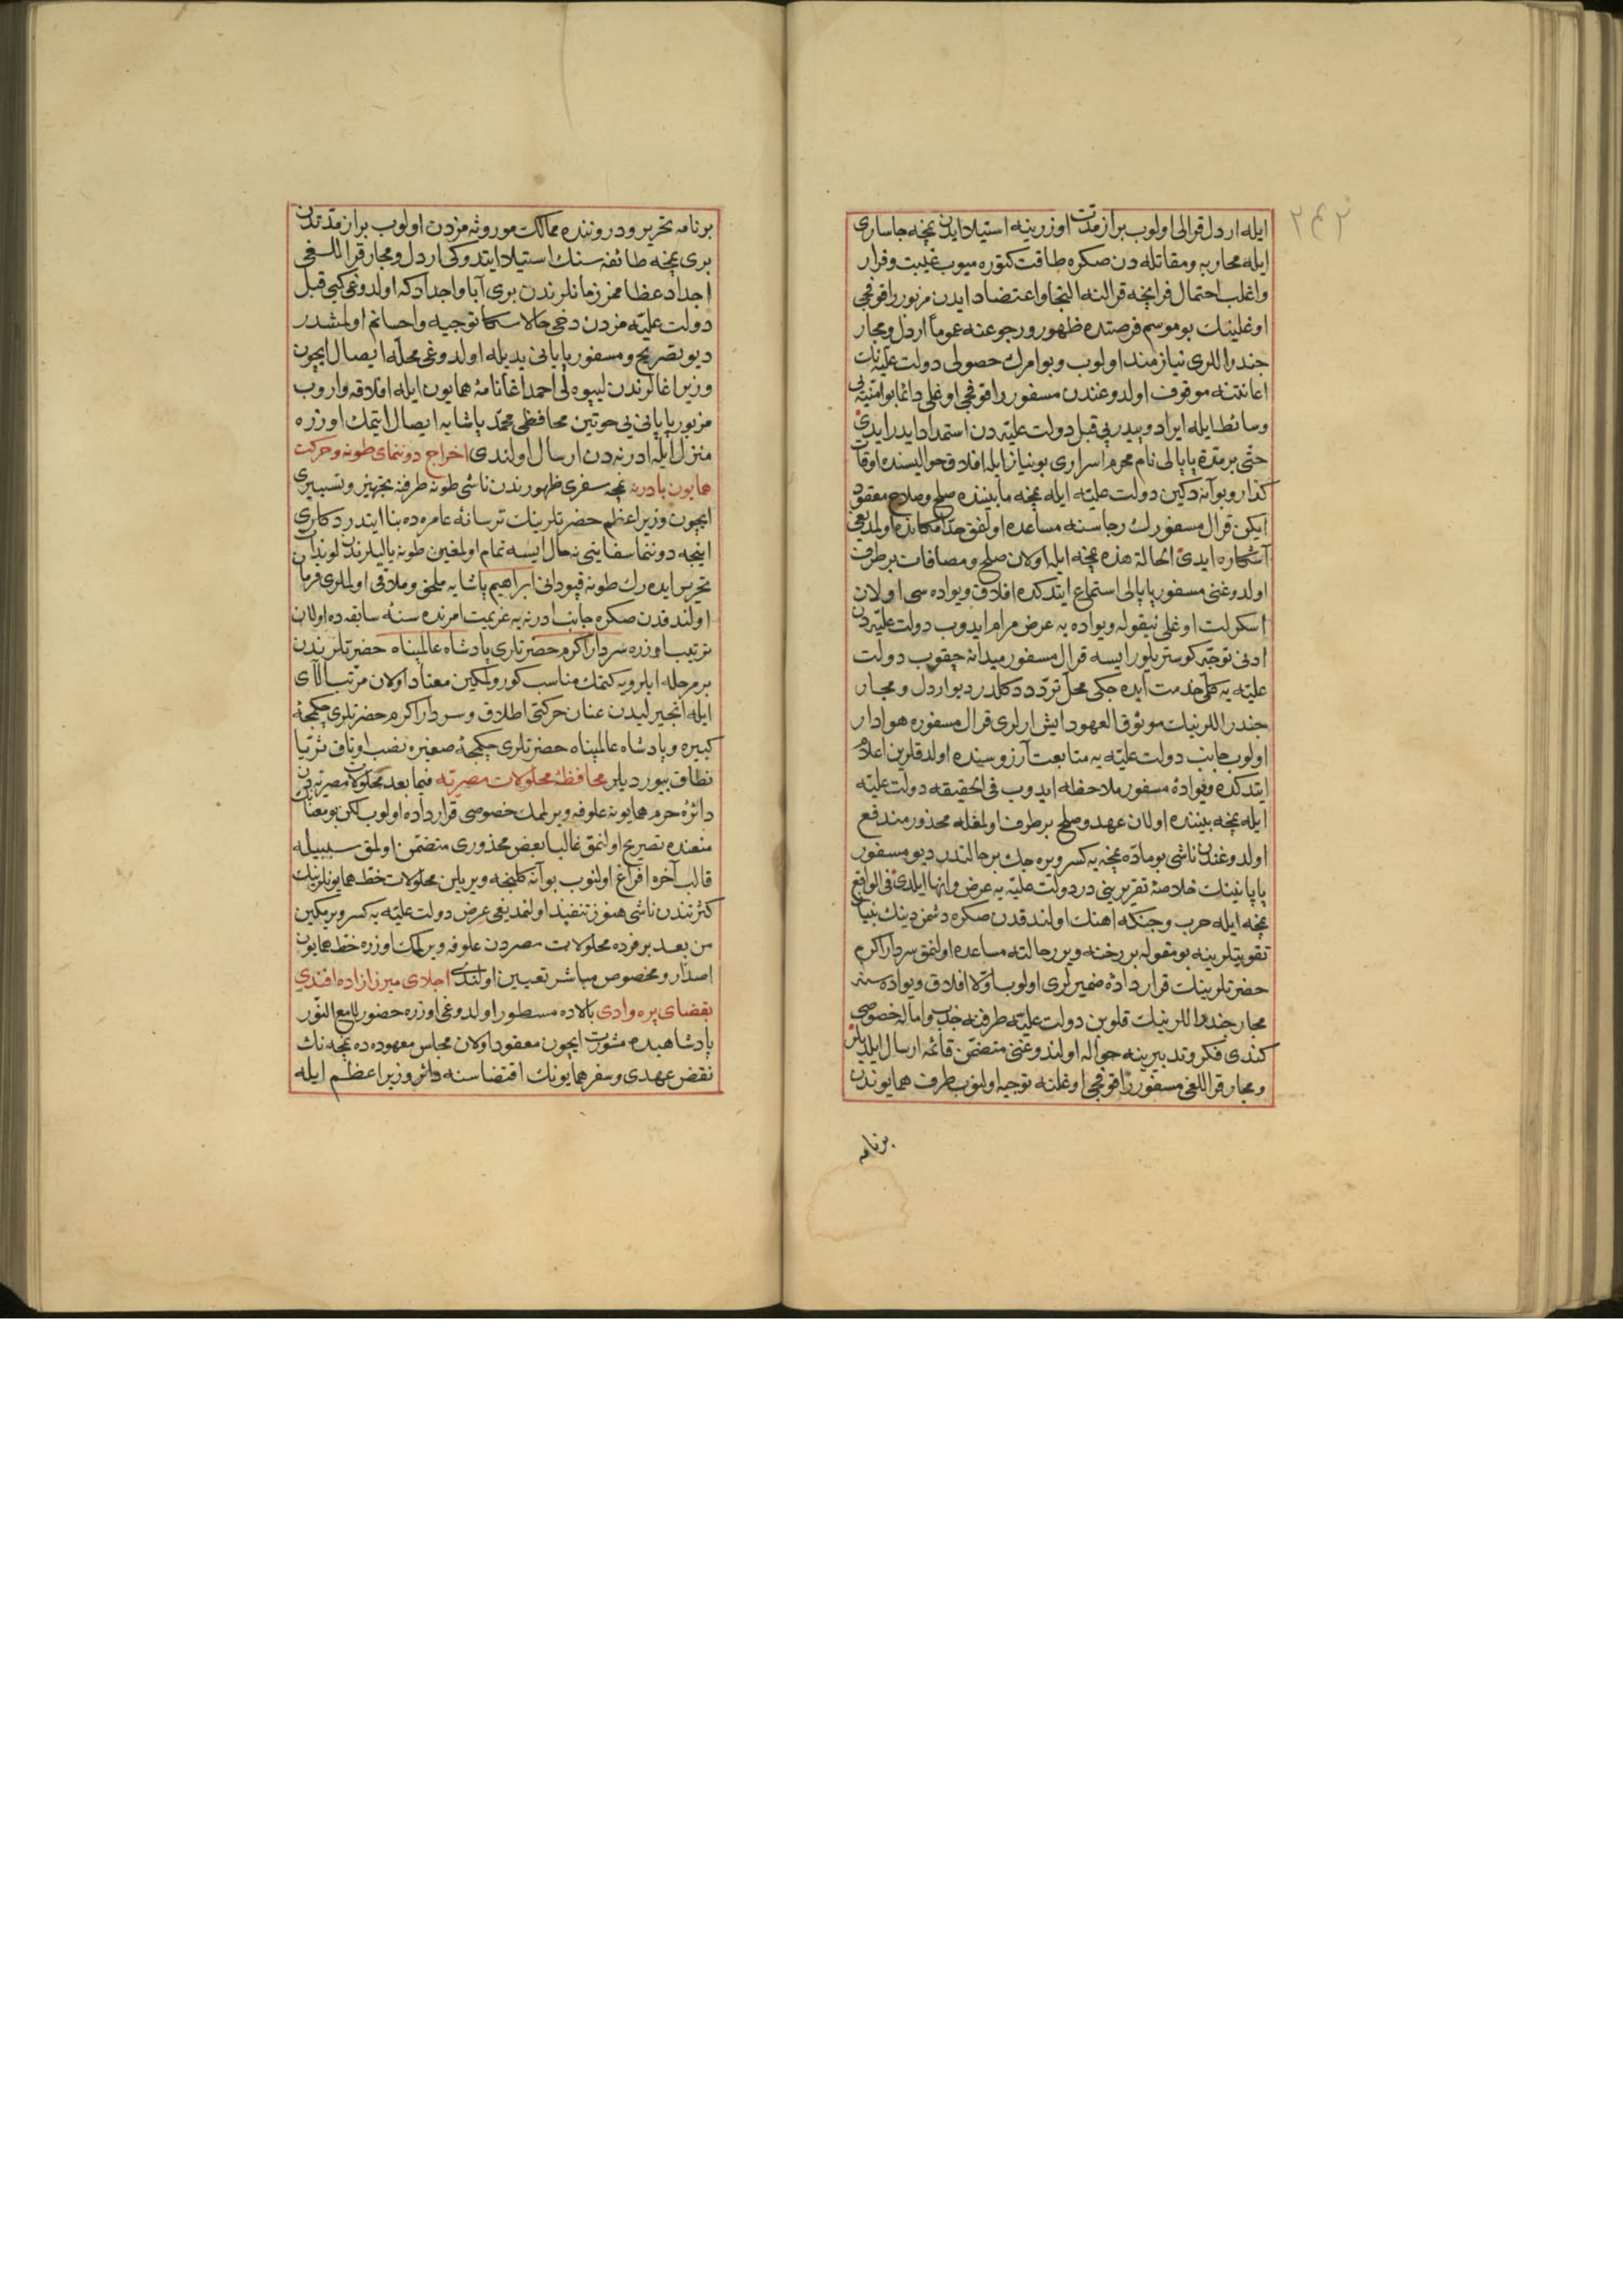 ٢٤٢
ايله اردل قرالی اولوب براز مدت اوزرينه استيلا ايدن نمچه جاساری
ايله محاربه و مقاتله دن صكره طاقت كتوره ميوب غيبت و فرار
و اغلب احتمال فرانچه قرالنه التجا و اعتضاد ايدن مزبور راقوفچی
اوغلينك بو موسم فرصتده ظهور و رجوعنه عموماً اردل و مجار
جندراللری نيازمند اولوب و بو امرك حصولی دولت عليه نك
اعانتنه موقوف اولدوغندن مسفور راقوفچی اوغلی دائما بو امنيه یی
وسائط ايله ايراد و پيدرپی قبل دولت عليه دن استمداد ايدر ايدی
حتی بر مدة پاپالی نام محرم اسراری بو نياز ايله افلاق حواليسنده اوقات
كذار و بو آنه دكين دولت عليه ايله نمچه مابيننده صلح و صلاح معقود
ايكن قرال مسفورك رجاسنه مساعده اولنمق حد امكانده اولمديغی
آشكاره ايدی الحالة هذه نمچه ايله اولان صلح و مصافات برطرف
اولدوغنی مسفور پاپالی استماع ايتدكده افلاق ويواده سی اولان
اسكرلت اوغلی نيقوله ويواده يه عرض مرام ايدوب دولت عليه دن
ادنی توجه كوستريلور ايسه قرال مسفور ميدانه چقوب دولت
عليه يه كلی خدمت ايده جكی محل تردد دكلدر ديو اردل و مجار
جندراللرينك موثوق العهود ايش ارلری قرال مسفوره هوادار
اولوب جانب دولت عليه يه متابعت آرزوسنده اولدقلرين اعلام
ايتدكده ويوادۀ مسفور ملاحظه ايدوب فی الحقيقه دولت عليه
ايله نمچه بيننده اولان عهد و صلح برطرف اولمغله محذور مندفع
اولدوغندن ناشی بو ماده نمچه يه كسر ويره جك بر حالتدر ديو مسفور
پاپاينك خلاصۀ تقريرينی در دولت عليه يه عرض و انها ايلدی فی الواقع
نمچه ايله حرب و جنكه اهنك اولندقدن صكره دشمن دينك بنيان
تقويتلرينه بو مقوله بر رخنه ويرر حالته مساعده اولنمق سردار اكرم
حضرتلرينك قرار دادۀ ضميرلری اولوب اولا افلاق ويواده سنه
مجار جندراللرينك قلوبن دولت عليه طرفنه جذب و اماله خصوصی
كندی فكر و تدبيرينه حواله اولندوغنی متضمن قائمه ارسال ايلديلر
و مجار قراللغی مسفور راقوفچی اوغلنه توجيه اولنوب طرف همايوندن
برنامه
برنامه تحرير و دروننده ممالك موروثه مزدن اولوب براز مدتدن
بری نمچه طائفه سنك استيلا ايتدوكی اردل و مجار قراللغی
اجداد عظاممز زمانلرندن بری آبا و اجدادكه اولدوغی كبی قبل
دولت عليه مزدن دخی حالا سكا توجيه و احسانم اولمشدر
ديو تصريح و مسفور پاپانی يديله اولدوغی محله ايصال ايچون
وزير اغالرندن ليپوه لی احمد اغا نامۀ همايون ايله افلاقه واروب
مزبور پاپانی یی حوتين محافظی محمد پاشايه ايصال ايتمك اوزره
منزل ايله ادرنه دن ارسال اولندی اخراج دوننمای طونه و حركت
همايون بادرنه نمچه سفری ظهورندن ناشی طونه طرفنه تجهيز و تسييری
ايچون وزير اعظم حضرتلرينك ترسانۀ عامره ده بنا ايتدردكلری
اينجه دوننما سفاينی نه حال ايسه تمام اولمغين طونه ياليلرندن لوندات
تحرير ايده رك طونه قپودانی ابراهيم پاشايه ملحق و ملاقی اولملری فرمان
اولندقدن صكره جانب ادرنه يه عزيمت امرنده سنۀ سابقه ده اولان
ترتيب اوزره سردار اكرم حضرتلری پادشاه عالمپناه حضرتلرندن
بر مرحله ايلرويه كتمك مناسب كورولمكين معتاد اولان مرتب آلای
ايله انجيرليدن عنان حركتی اطلاق و سردار اكرم حضرتلری چكمجۀ
كبيره و پادشاه عالمپناه حضرتلری چكمجۀ صغيره نصب اوتاق ثريا
نطاق بيورديلر محافظۀ محلولات مصريه فيما بعد محلولات مصريه دن
دائرۀ حرم همايونه علوفه ويرلمك خصوصی قرارداده اولوب لكن بو معنانك
متعنده تصريح اولنمق غالبا بعض محذوری متضمن اولمق سببيله
قالب آخره افراغ اولنوب بو آنه كلنجه ويريلن محلولات خط همايونلرينك
كثرتندن ناشی هنوز تنفيذ اولنمديغی عرض دولت عليه يه كسر ويرمكين
من بعد بر فرده محلولات مصردن علوفه ويرلمك اوزره خط همايون
اصدار و مخصوص مباشر تعيين اولندی اجلای ميرزازاده افندی
بقضای پره وادی بالاده مسطور اولدوغی اوزره حضور لامع النور
پادشاهيده مشورت ايچون معقود اولان مجلس معهوده ده نمچه نك
نقض عهدی و سفر همايونك اقتضاسنه دائر وزير اعظم ايله